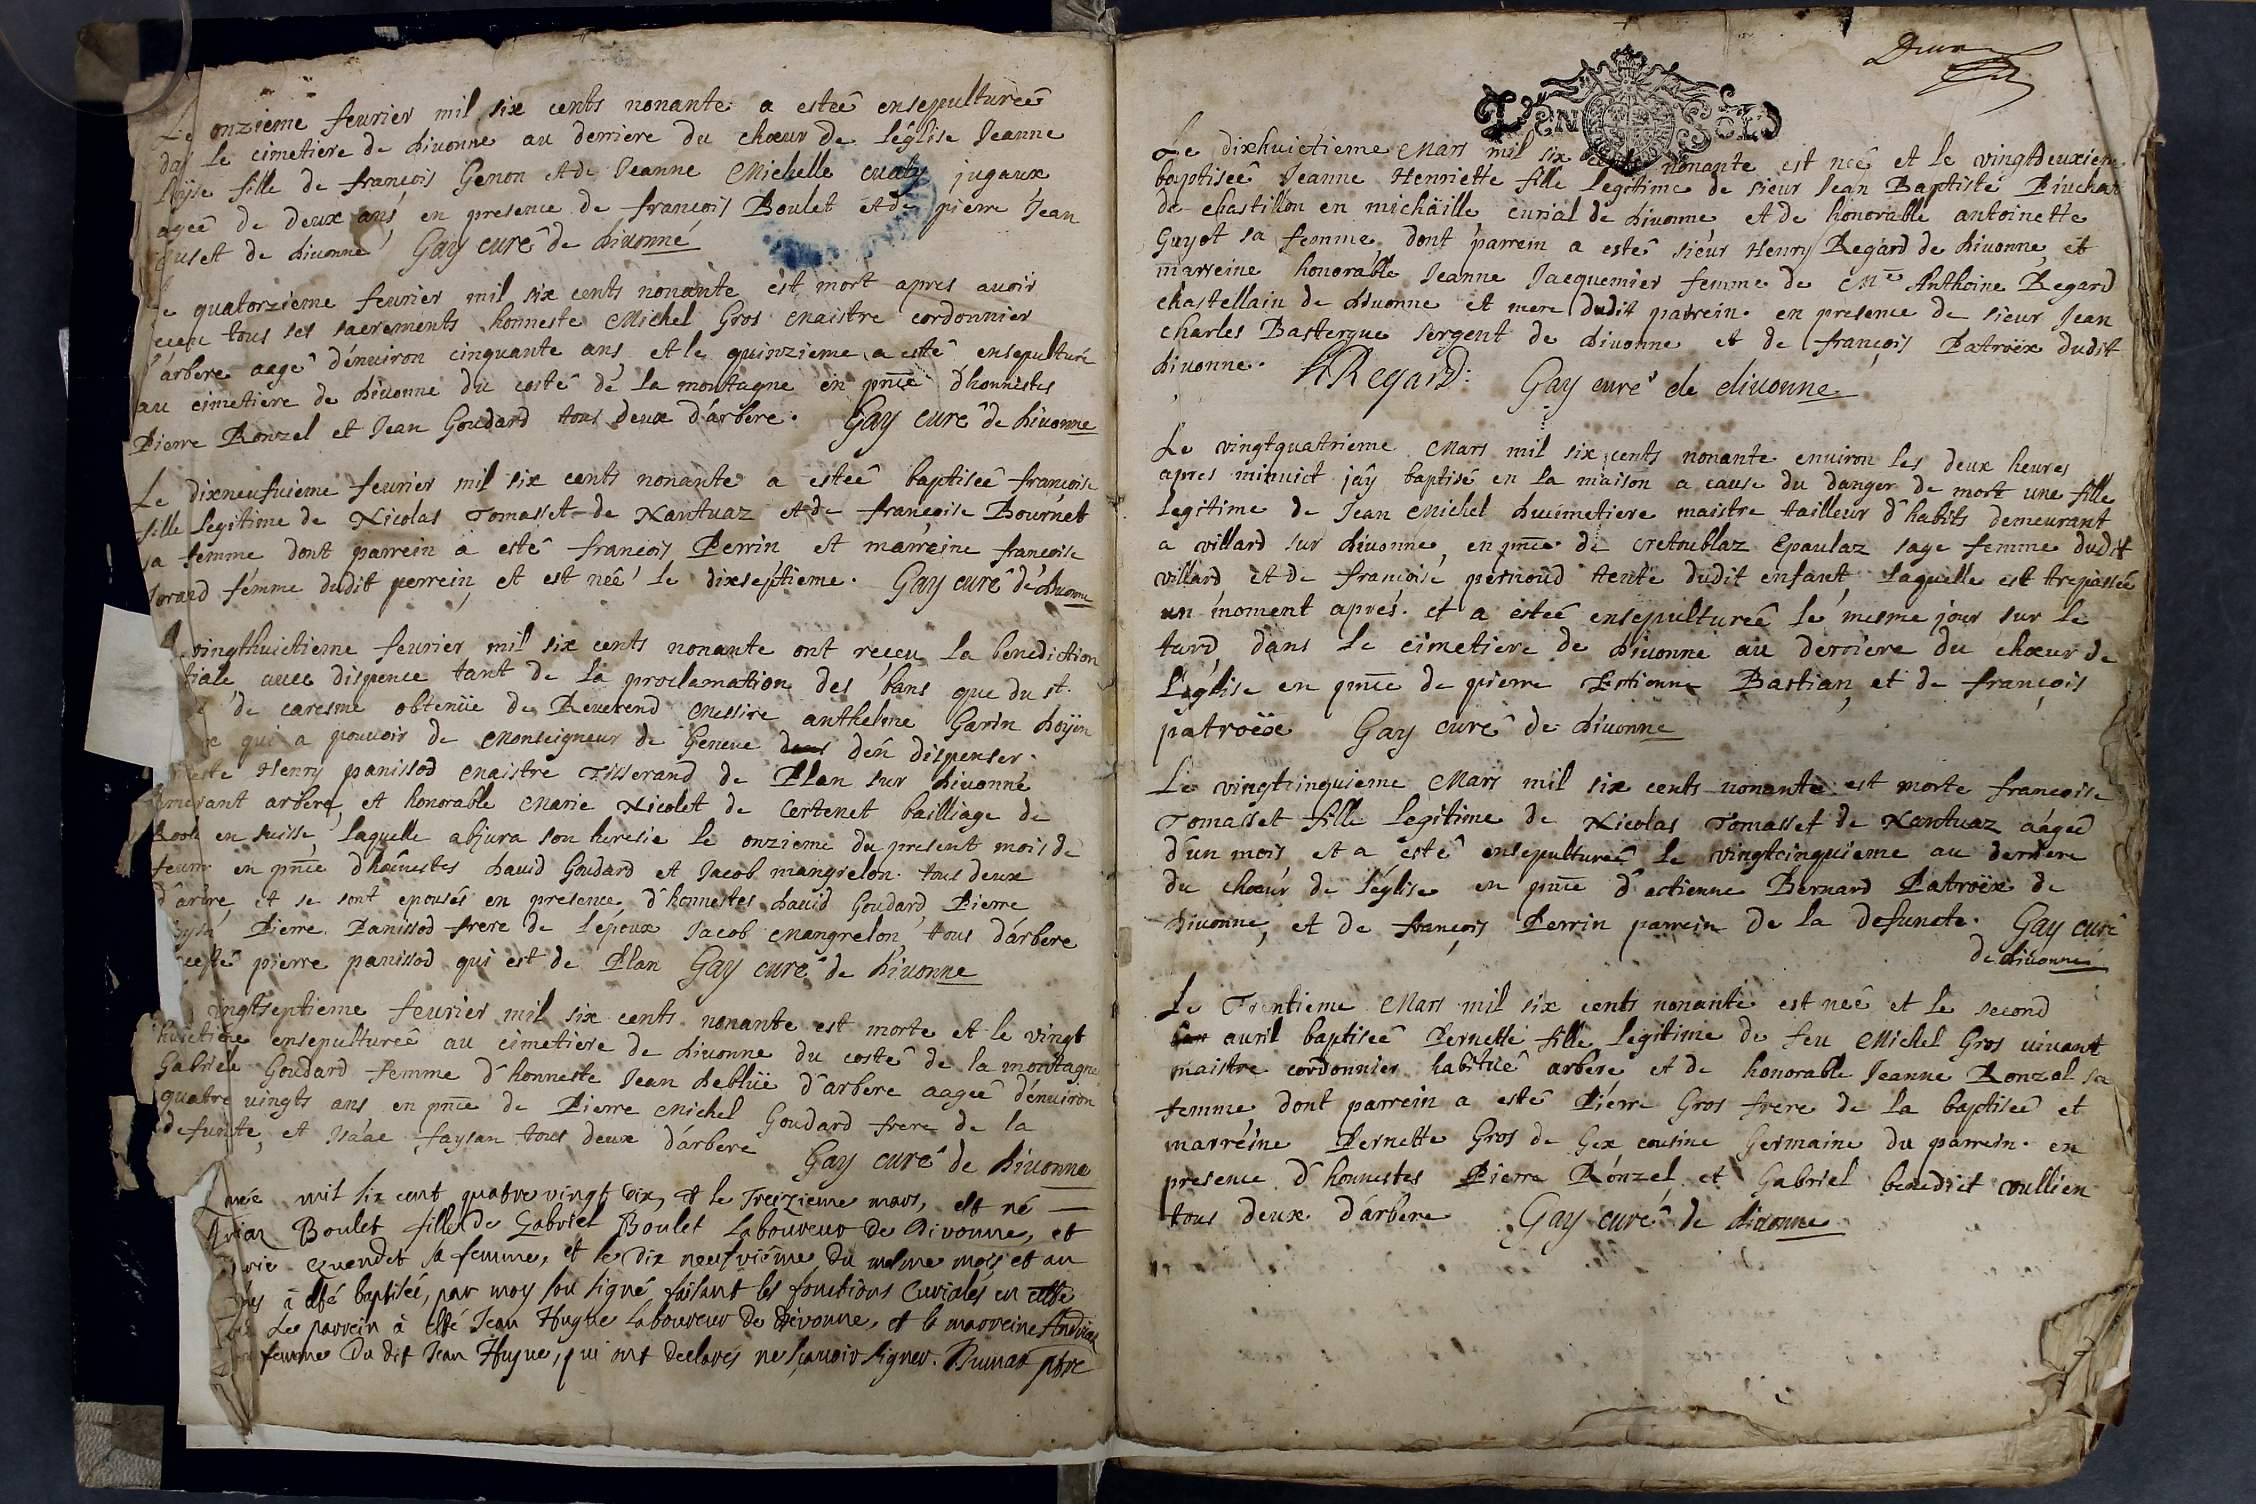 Le onzieme feurier mil six cents nonante a esteê ensepultureê
das le cimetiere de diuonne au derriere du chœur de l'église Jeanne
fille de françois Genon et de Jeanne Michelle jugaux
ageê de deux ans, en presence de francois Boulet et de pierre Jean
de diuonne Gay curé de diuonné
quatorzieme feurier mil six cents nonante est mort apres auoir
receu tous ses sacrements honneste Michel Gros Maistre cordonnier
d'arbere aagê d'énuiron cinquante ans et le quinzieme a estê ensepulturé
au cimetiere de diuonne du costê de la montagne en pnce d'honnestes
Pierre Ronzel et Jean Goudard tous deux d'arbere. Gay curê de diuonne
Le dixneufuieme feurier mil six cents nonante a esteê baptiseê francoise
fille legitime de Nicolas Tomasset de Nantuaz et de françoise Bournet
sa femme dont parrein a estê francois Perrin et marreine francoise
femme dudit perrein, et est neê le dixseptieme. Gay curê de diuonne
vingthuictieme feurier mil six cents nonante ont receu la benediction
auec dispence tant de la proclamation des bans que du st.
de caresme obtenüe de Reuerend Messire anthelme Garin doÿen
qui a pouuoir de Monseigneur de Geneue d'en dispenser.
Henry panissod Maistre Tisserand de Plan sur diuonné
arbere, et honorable Marie Nicolet de Certenet bailliage de
en suisse, laquelle abjura son heresie le onzieme du present mois de
feurr en pnce d'honestes dauid Goudard et Jacob mangrelon. tous deux
d'arbre, et se sont epousés en presence d'honnestes dauid Goudard Pierre
Pierre Panissod frere de l'époux Jacob Mangrelon tous d'árbere
pierre panissod qui est de Plan Gay curê de diuonne
vingtseptieme feurier mil six cents nonante est morte et le vingt
huictieme ensepultureê au cimetiere de diuonne du costê de la montagne
Gabriele Goudard femme d'honneste Jean debluë d'arbere aageê d'énuiron
quatre vingts ans en pnce de Pierre Michel Goudard frere de la
defunte, et Isáac faysan tous deux d'árbere Gay curê de diuonne
mil six cent quatre vingt dix, et le Treizieme mars, est né
Boulet fille de Gabriel Boulet Laboureur de Divonne, et
quendet sa femme, et le dix neufvième du mesme mois et an
à esté baptisée, par moy sou signé faisant les fonctions Curiales en
Le parrein à esté Jean Hugue Laboureur de divonne, et la marreine Andriaz
femme du dit Jean Hugue, qui ont declarés ne sçauoir signer. ptre
DEN SOLS
Le dixhuictieme Mars mil six nonante est neê et le vingtdeuxieme
baptiseê Jeanne Henriette fille legitime de sieur Jean Baptiste
de chastillon en michäille curial de diuonne et de honorable antoinette
Guyot sa femme dont parrein a estê sieur Henry Regard de diuonne, et
marreine honorable Jeanne Jacquemier femme de Me Anthoine Regard
chastellain de diuonne et mere dudit parrein. en presence de sieur Jean
charles Bastergue sergent de diuonne et de françois Patroëx dudit
diuonne. HRegard: Gay curé de diuonne.
Le vingtquatrieme Mars mil six cents nonante enuiron les deux heures
apres minuict j'ay baptisé en la maison a cause du danger de mort une fille
legitime de Jean Michel ducimetiere maistre tailleur d'habits demeurant
a villard sur diuonne, en pnce de Epaulaz sage femme dudit
villard et de francoise pernoud tente dudit enfant, laquelle est trepasseé
un moment aprés. et a esteê ensepultureê le mesme jour sur le
tard dans le cimetiere de diuonne au derriere du chœur de
l'église en pnce de pierre Estienne Bastian, et de françois
patroëx Gay curê de diuonne
Le vingtcinquieme Mars mil six cents nonante est morte francoise
Tomasset fille legitime de Nicolas Tomasset de Nantuaz aágeê
d'un mois et a estê ensepultureê le vingtcinquieme au derriere
du chœur de l'église en pnce d'actienne Bernard Patroëx de
diuonne, et de françois Perrin parrein de la defuncte. Gay curê
de diuonne
Le Trentieme Mars mil six cents nonante est neê et le second
avril baptiseê Pernette fille legitime de feu Michel Gros viuant
maistre cordonnier habituê arbere et de honorable Jeanne Ronzel sa
femme dont parrein a estê Piérre Gros frere de la baptiseê et
marréine Pernette Gros de Gex cousine Germaine du parrein. en
presence d'honnestes Pierre Rónzel, et Gabriel benedict vullien
tous deux d'árbere Gay curê de diuonne